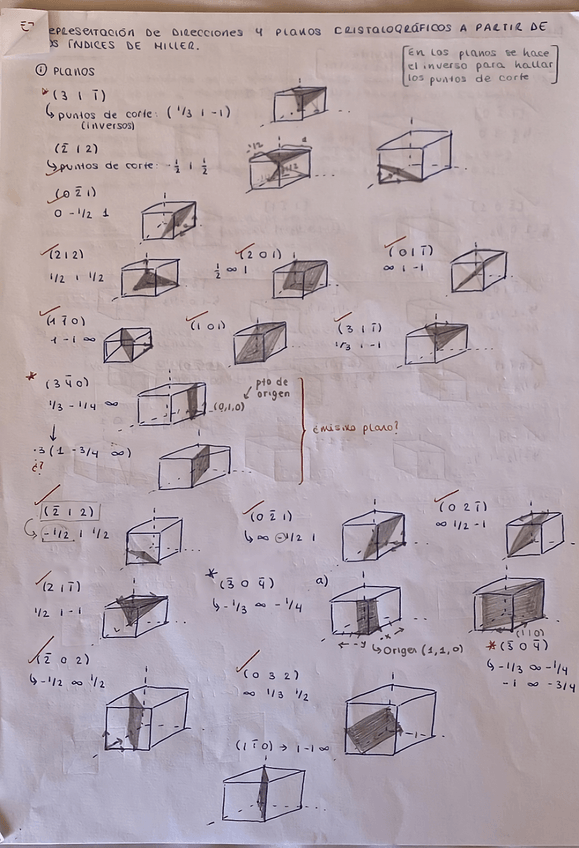 EPRESENTACIÓN DE DIRECCIONES Y PLANOS CRISTALOGRÁFICOS A PARTIR DE
OS ÍNDICES DE MILLER.
[En los planos se hace
el inverso para hallar
los puntos de corte]
① PLANOS
* (3 1 1̄)
↳ puntos de corte: (1/3 1 -1)
(inversos)
(2̄ 1 2)
↳ puntos de corte: -1/2 1 1/2
(0 2̄ 1)
0 -1/2 1
(2 1 2)
1/2 1 1/2
(2 0 1)
1/2 ∞ 1
(0 1 1̄)
∞ 1 -1
(1 1̄ 0)
1 -1 ∞
(1 0 1)
(3 1 1̄)
1/3 1 -1
* (3 4̄ 0)
1/3 -1/4 ∞
pto de
origen
(0,1,0)
¿mismo plano?
·3 (1 -3/4 ∞)
¿?
(2̄ 1 2)
↳ -1/2 1 1/2
(0 2̄ 1)
↳ ∞ -1/2 1
(0 2 1̄)
∞ 1/2 -1
(2 1 1̄)
1/2 1 -1
* (3̄ 0 4̄)
↳ -1/3 ∞ -1/4
a)
← -y
-x
↳ Origen (1,1,0)
(110)
* (3̄ 0 4̄)
↳ -1/3 ∞ -1/4
-1 ∞ -3/4
(2̄ 0 2)
↳ -1/2 ∞ 1/2
(0 3 2)
∞ 1/3 1/2
(1 1̄ 0) → 1 -1 ∞